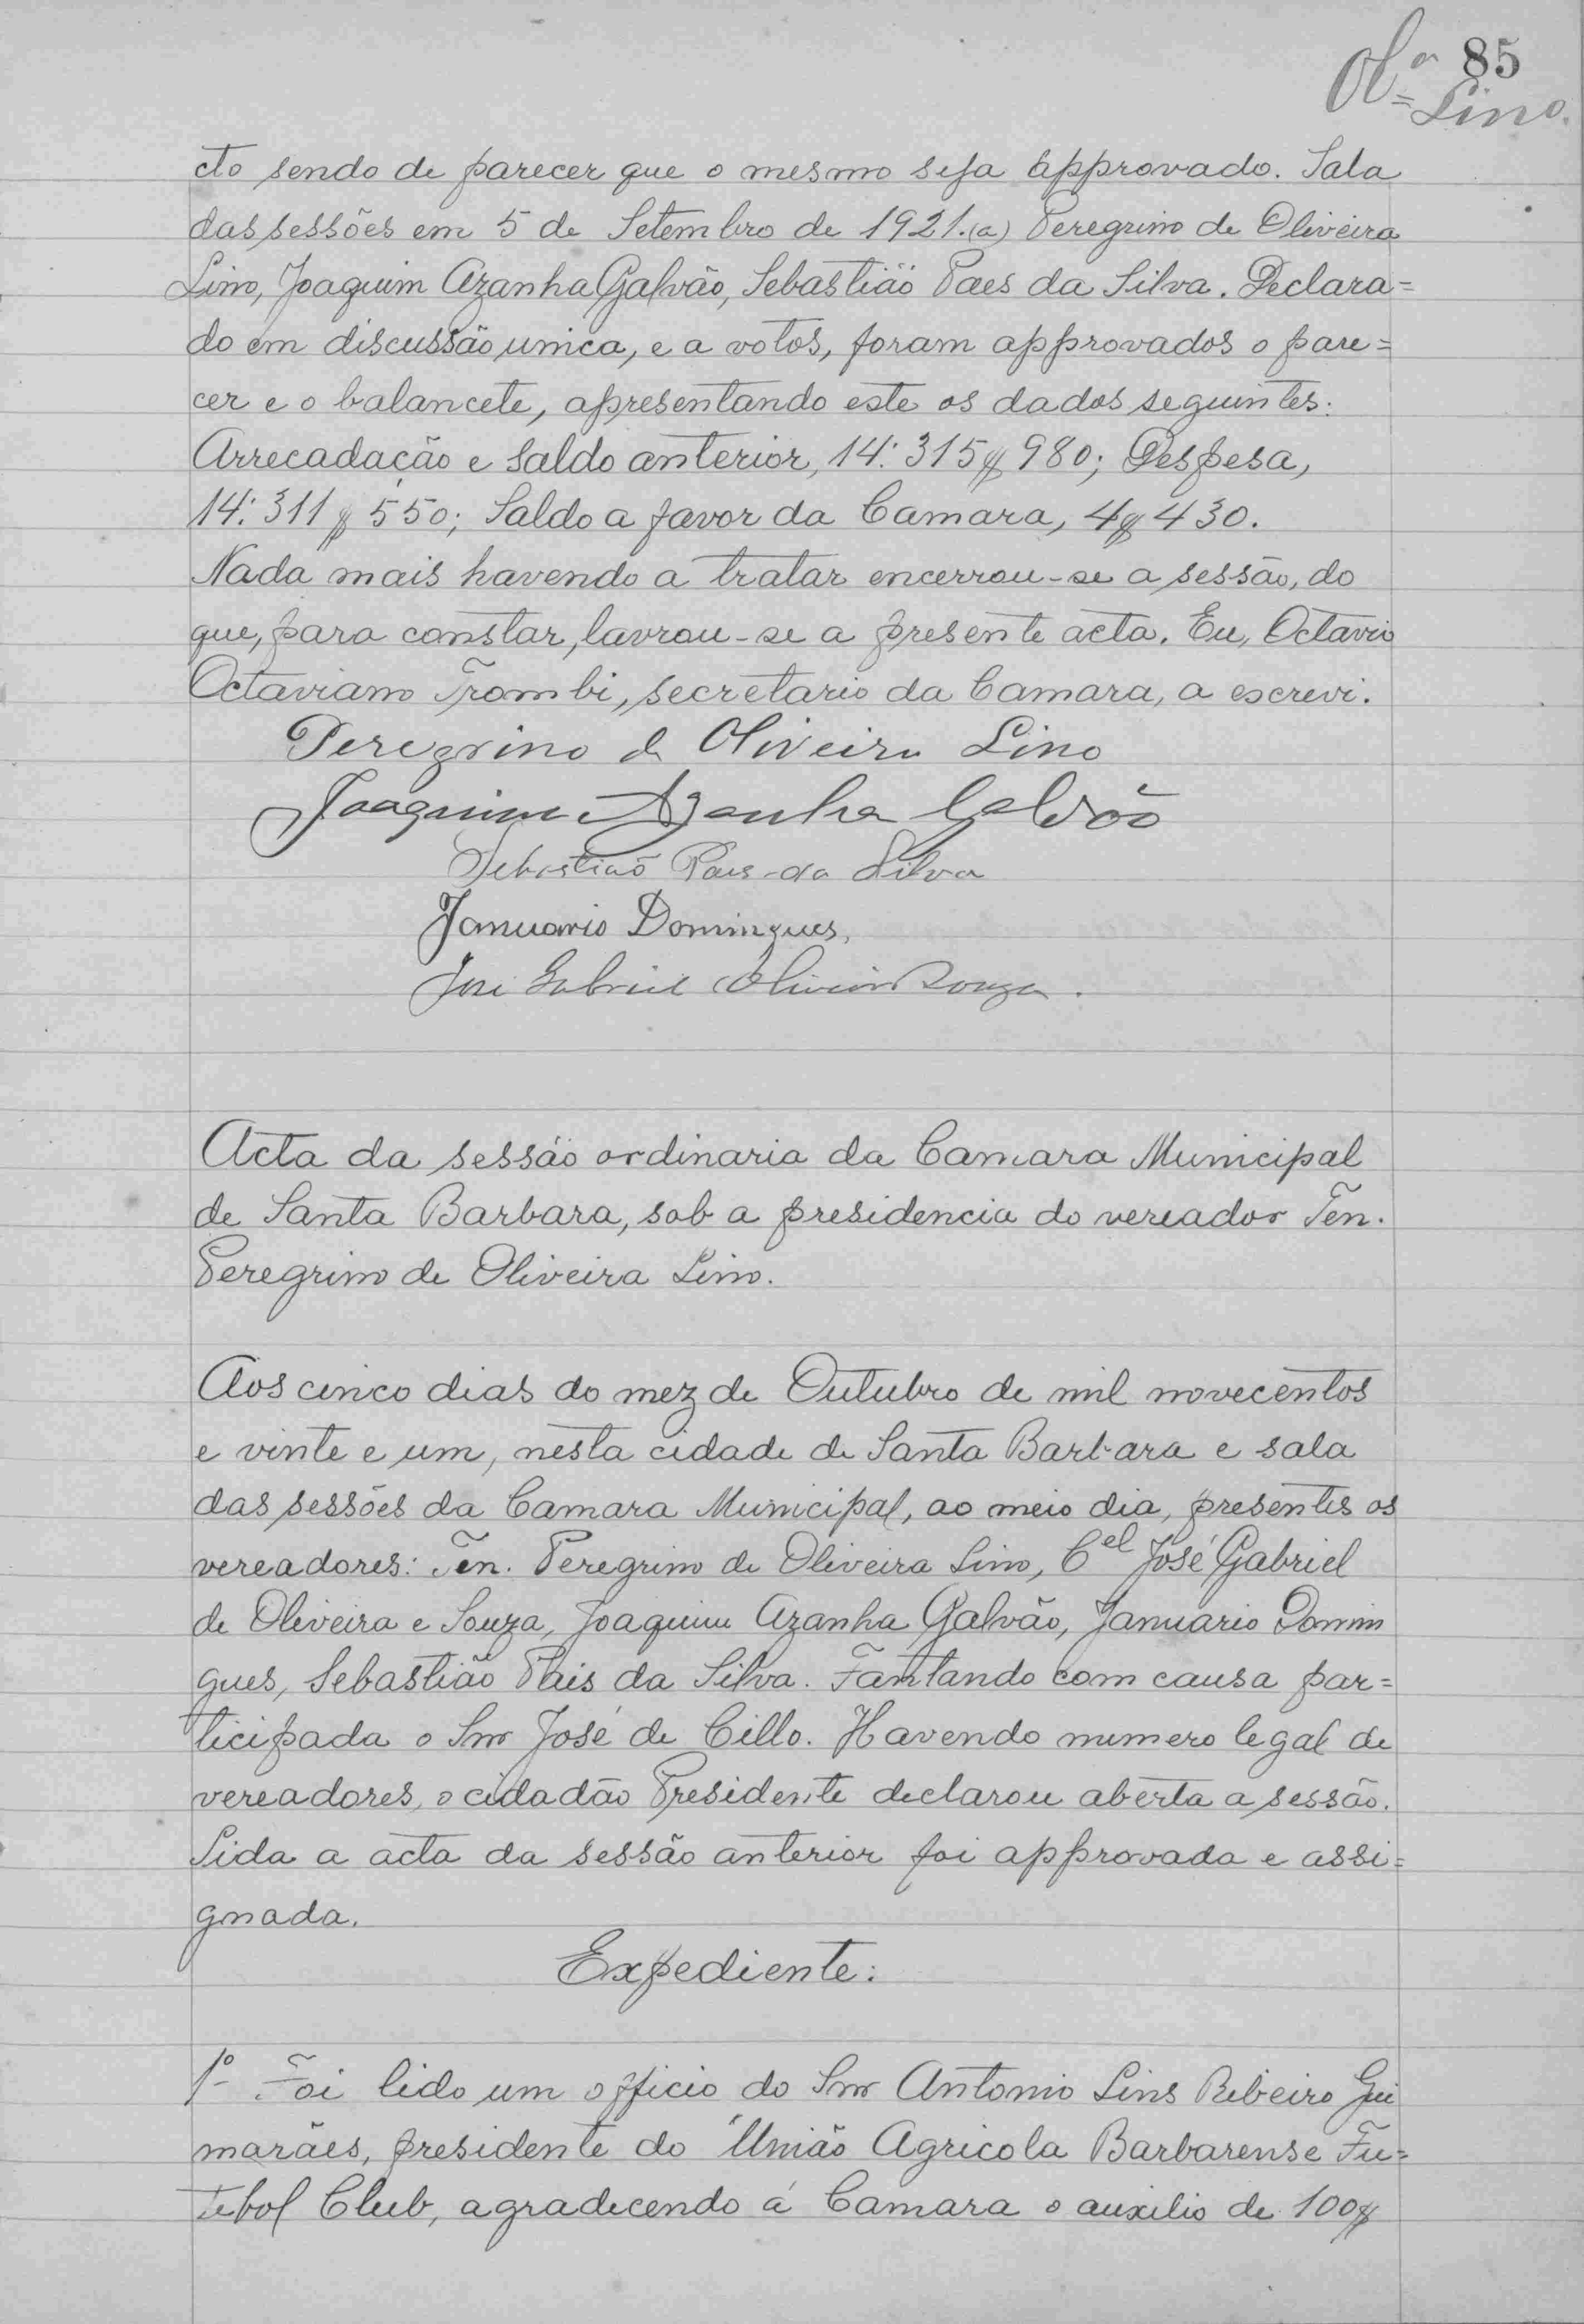 85
Olª Lino.
cto sendo de parecer que o mesmo seja approvado. Sala
das sessões em 5 de Setembro de 1921.(a) Peregrino de Oliveira
Lino, Joaquim Azanha Galvão, Sebastião Paes da Silva. Declara=
do em discussão unica, e a votos, foram approvados o pare=
cer e o balancete, apresentando este os dados seguintes:
Arrecadação e saldo anterior, 14:315$980; Despesa,
14:311$550; Saldo a favor da Camara, 4$430.
Nada mais havendo a tratar encerrou-se a sessão, do
que, para constar, lavrou-se a presente acta. Eu, Octavio
Octaviano Trombi, secretario da Camara, a escrevi.
Peregrino de Oliveira Lino
Joaquim Azanha Galvão
Sebastião Paes da Silva
Januario Domingues,
José Gabriel Oliveira Souza.
Acta da sessão ordinaria da Camara Municipal
de Santa Barbara, sob a presidencia do vereador Ten.
Peregrino de Oliveira Lino.
Aos cinco dias do mez de Outubro de mil novecentos
e vinte e um, nesta cidade de Santa Barbara e sala
das sessões da Camara Municipal, ao meio dia, presentes os
vereadores: Ten. Peregrino de Oliveira Lino, Cel José Gabriel
de Oliveira e Souza, Joaquim Azanha Galvão, Januario Domin
gues, Sebastião Pais da Silva. Famtando com causa par=
ticipada o Snr José de Cillo. Havendo numero legal de
vereadores, o cidadão Presidente declarou aberta a sessão.
Lida a acta da sessão anterior foi approvada e assi=
gnada.
Expediente:
1º Foi lido um officio do Snr Antonio Lins Ribeiro Gui
marães, presidente do União Agricola Barbarense Fu=
tebol Club, agradecendo á Camara o auxilio de 100$